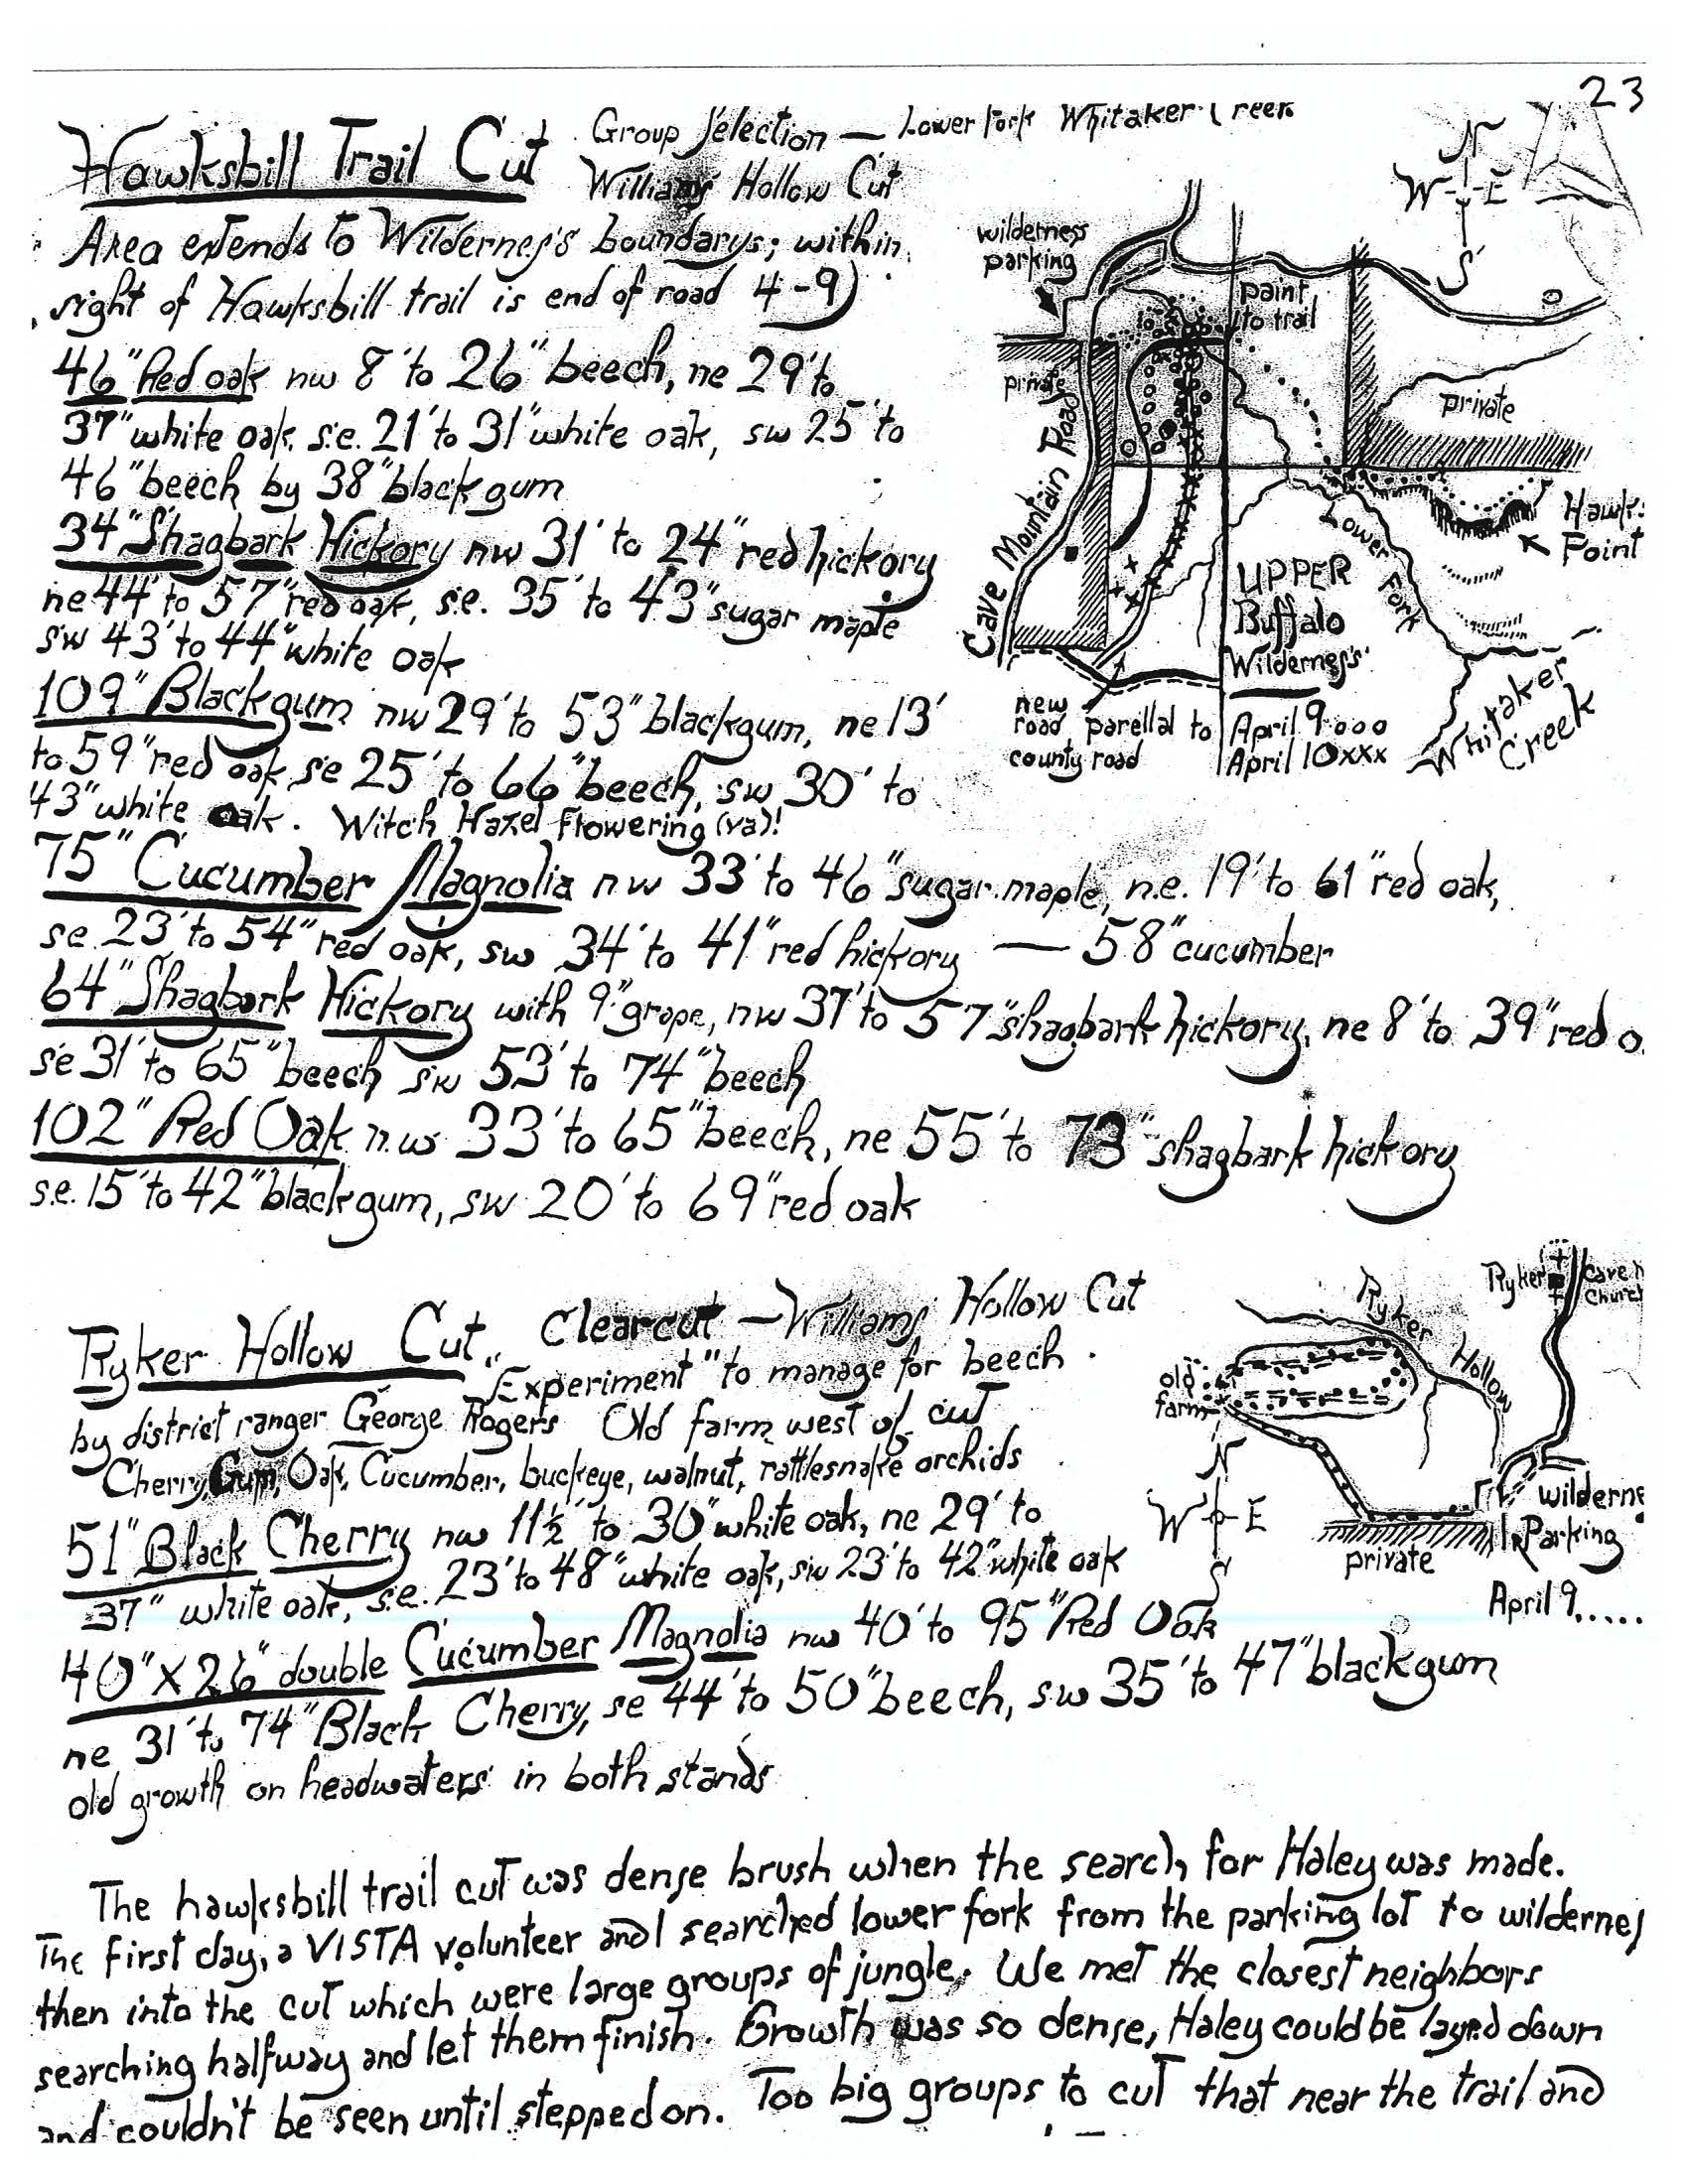 23
Hawksbill Trail Cut Group Selection — Lower Fork Whitaker Creek
Williams Hollow Cut
Area extends to Wilderness boundarys; within
sight of Hawksbill trail is end of road 4-9)
46" Red oak nw 8' to 26" beech, ne 29' to
37" white oak. s.e. 21' to 31" white oak, sw 25' to
46" beech by 38" blackgum
34" Shagbark Hickory nw 31' to 24" red hickory
ne 44' to 57" red oak, s.e. 35' to 43" sugar maple
sw 43' to 44" white oak
109" Blackgum nw 29' to 53" blackgum, ne 13'
to 59" red oak, se 25' to 66" beech, sw 30' to
43" white oak. Witch Hazel Flowering (va)!
75" Cucumber Magnolia nw 33' to 46" sugar maple, n.e. 19' to 61" red oak,
se 23' to 54" red oak, sw 34' to 41" red hickory — 58" cucumber
64" Shagbark Hickory with 9" grape, nw 37' to 57" shagbark hickory, ne 8' to 39" red o
se 31' to 65" beech sw 53' to 74" beech
102" Red Oak n.w 33' to 65" beech, ne 55' to 73" shagbark hickory
s.e. 15' to 42" blackgum, sw 20' to 69" red oak
N
W E
S
wilderness
parking
paint
to trail
private
private
Cave Mountain Road
Lower Fork
Hawk
Point
UPPER
Buffalo
Wilderness
Whitaker
Creek
new
road parellal to
county road
April 9 ooo
April 10 xxx
Ryker Hollow Cut, Clearcut — Williams Hollow Cut
"Experiment" to manage for beech
by district ranger George Rogers Old farm west of cut
Cherry, Gum, Oak, Cucumber, buckeye, walnut, rattlesnake orchids
51" Black Cherry nw 11½' to 30" white oak, ne 29' to
37" white oak, s.e. 23' to 48" white oak, sw 23' to 42" white oak
40" X 26" double Cucumber Magnolia nw 40' to 95" Red Oak
ne 31' to 74" Black Cherry, se 44' to 50" beech, sw 35' to 47" blackgum
old growth on headwaters in both stands
Ryker
Cave
Church
Ryker Hollow
old
farm
N
W E
S
wilderne
Parking
private
April 9.....
The hawksbill trail cut was dense brush when the search for Haley was made.
The first day, a VISTA volunteer and I searched lower fork from the parking lot to wildernes
then into the cut which were large groups of jungle. We met the closest neighbors
searching halfway and let them finish. Growth was so dense, Haley could be layed down
and couldn't be seen until stepped on. Too big groups to cut that near the trail and